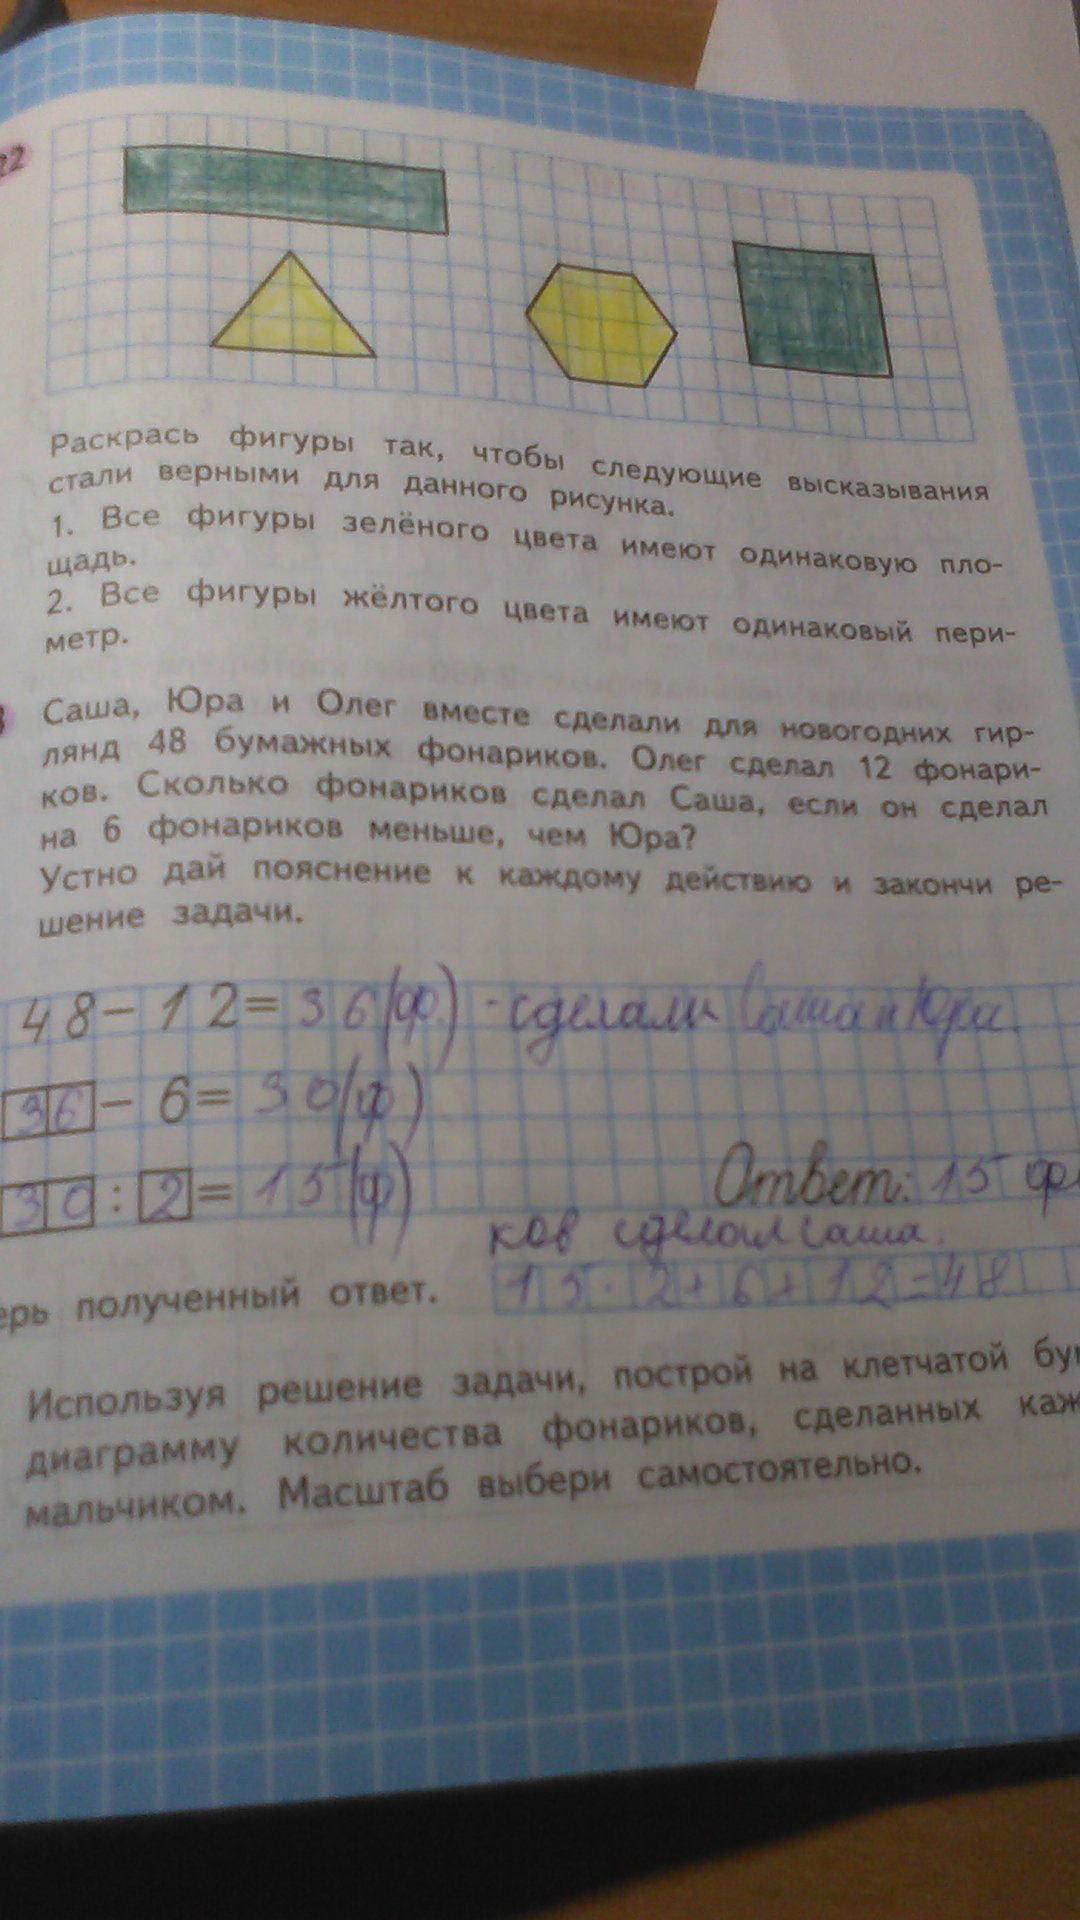 22
Раскрась фигуры так, чтобы следующие высказывания
стали верными для данного рисунка.
1. Все фигуры зелёного цвета имеют одинаковую пло-
щадь.
2. Все фигуры жёлтого цвета имеют одинаковый пери-
метр.
Саша, Юра и Олег вместе сделали для новогодних гир-
лянд 48 бумажных фонариков. Олег сделал 12 фонари-
ков. Сколько фонариков сделал Саша, если он сделал
на 6 фонариков меньше, чем Юра?
Устно дай пояснение к каждому действию и закончи ре-
шение задачи.
48-12=36(ф.) - сделали Саша и Юра.
36-6=30(ф)
30:2=15(ф) Ответ: 15
ков сделал Саша.
полученный ответ. 15·2+6+12=48
Используя решение задачи, построй на клетчатой
диаграмму количества фонариков, сделанных
мальчиком. Масштаб выбери самостоятельно.